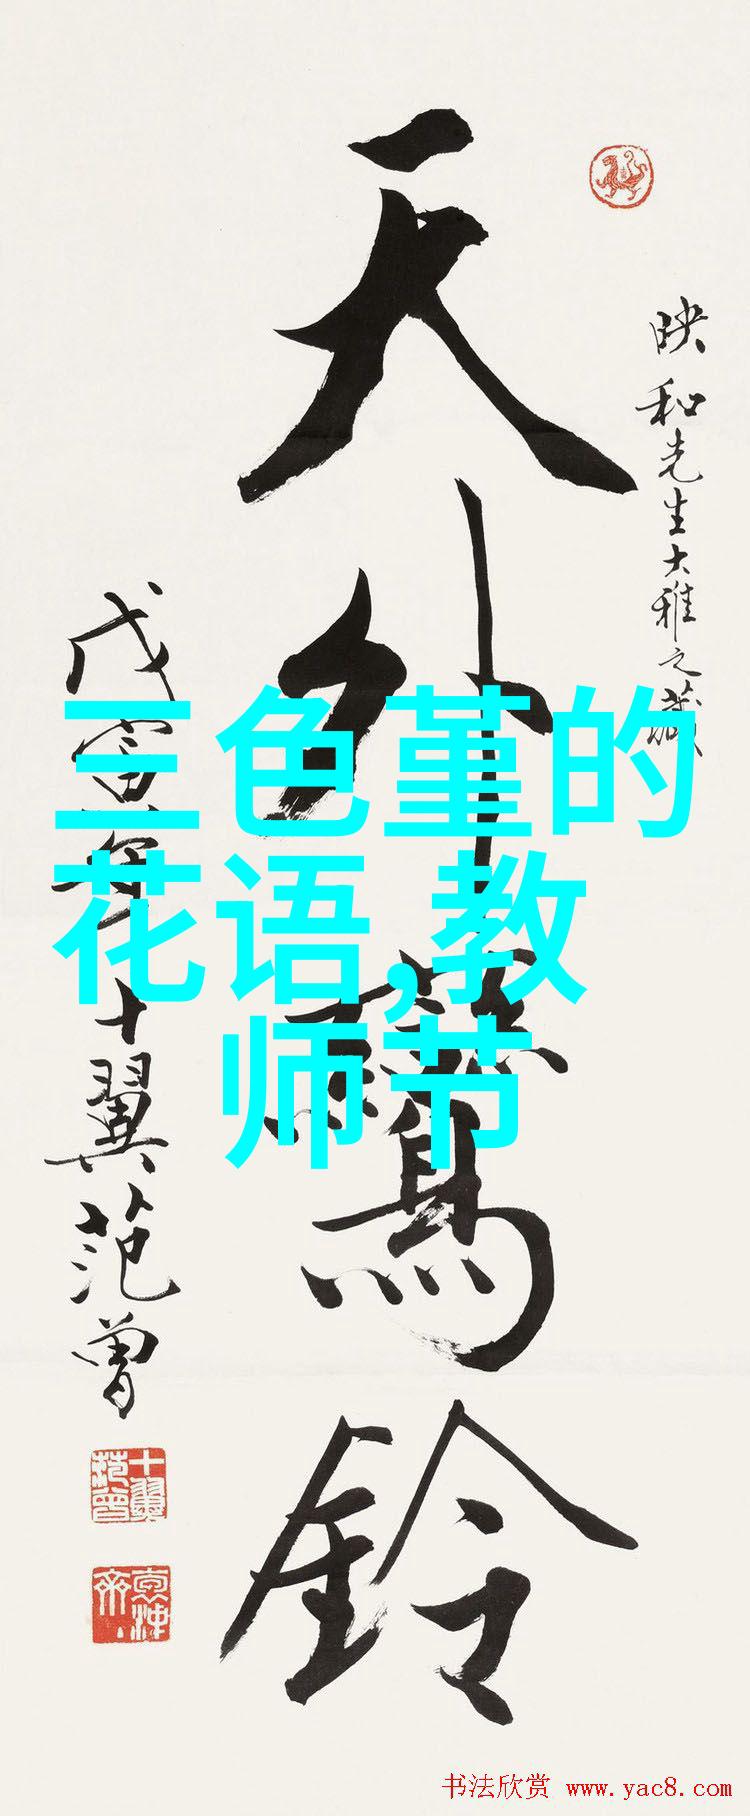 映和先生大雅之藏
天外驚鈴
戊寅年十翼范曾
十翼范曾
三色堇的
花语,教
师节
书法欣赏 www.yac8.com